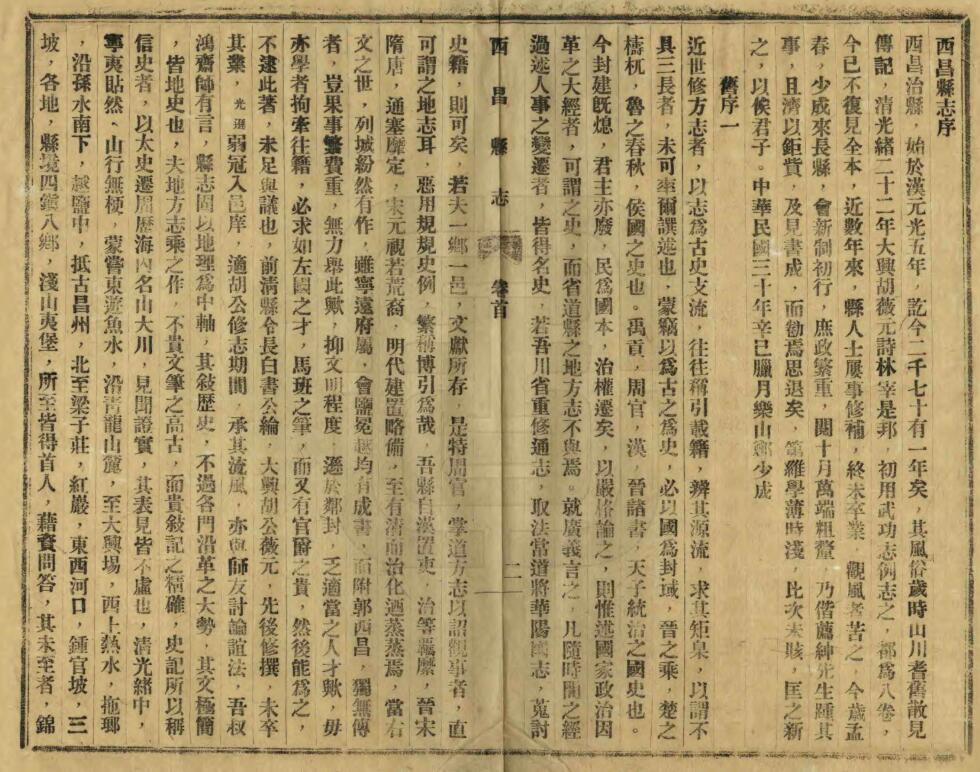 西昌縣志序
西昌治縣，始於漢元光五年，訖今二千七十有一年矣，其風俗歲時山川耆舊散見
傳記，清光緒二十二年大興胡薇元詩林宰是邦，初用武功志例志之，都為八卷，
今已不復見全本，近數年來，縣人士屢事修補，終未卒業，觀風者苦之，今歲孟
春，少成來長縣，會新制初行，庶政繁重，閱十月萬端粗釐，乃偕薦紳先生踵其
事，且濟以鉅貲，及見書成，而勩焉思退矣，第維學薄時淺，比次未賅，匡之新
之，以俟君子。中華民國三十年辛巳臘月樂山鄭少成
舊序一
近世修方志者，以志為古史支流，往往稱引載籍，辨其源流，求其矩臬，以謂不
具三長者，未可率爾譔述也，蒙竊以為古之為史，必以國為封域，晉之乘，楚之
檮杌，魯之春秋，侯國之史也。禹貢，周官，漢，晉諸書，天子統治之國史也。
今封建既熄，君主亦廢，民為國本，治權遷矣，以嚴格論之，則惟述國家政治因
革之大經者，可謂之史，而省道縣之地方志不與焉。就廣義言之，凡隨時間之經
過述人事之變遷者，皆得名史，若吾川省重修通志，取法常道將華陽國志，蒐討
西昌縣志 卷首 二
史籍，則可矣，若夫一鄉一邑，文獻所存，是特周官，掌道方志以詔觀事者，直
可謂之地志耳，惡用規規史例，繁稱博引為哉，吾縣自漢置吏，治等羈縻，晉宋
隋唐，通塞靡定，宋元視若荒裔，明代建置略備，至有清而治化迺蒸蒸焉，當右
文之世，列城紛然有作，雖寧遠府屬，會鹽冕越均有成書，而附郭西昌，獨無傳
者，豈果事繁費重，無力舉此歟，抑文明程度，遜於鄰封，乏適當之人才歟，毋
亦學者拘牽往籍，必求如左國之才，馬班之筆，而又有官爵之貴，然後能為之，
不逮此著，未足與議也，前清縣令長白書公綸，大興胡公薇元，先後修撰，未卒
其業，光遜弱冠入邑庠，適胡公修志期間，承其流風，亦與師友討論誼法，吾叔
鴻齋師有言，縣志固以地理為中軸，其敍歷史，不過各門沿革之大勢，其文極簡
，皆地史也，夫地方志乘之作，不貴文筆之高古，而貴敍記之精確，史記所以稱
信史者，以太史遷周歷海內名山大川，見聞證實，其表見皆不虛也，清光緒中，
寧夷貼然，山行無梗，蒙嘗東遊魚水，沿青龍山麓，至大興場，西上熱水，拖瑯
，沿孫水南下，越鹽中，抵古昌州，北至梁子莊，紅巖，東西河口，鍾官坡，三
坡，各地，縣境四鎮八鄉，淺山夷堡，所至皆得首人，藉資問答，其未至者，錦